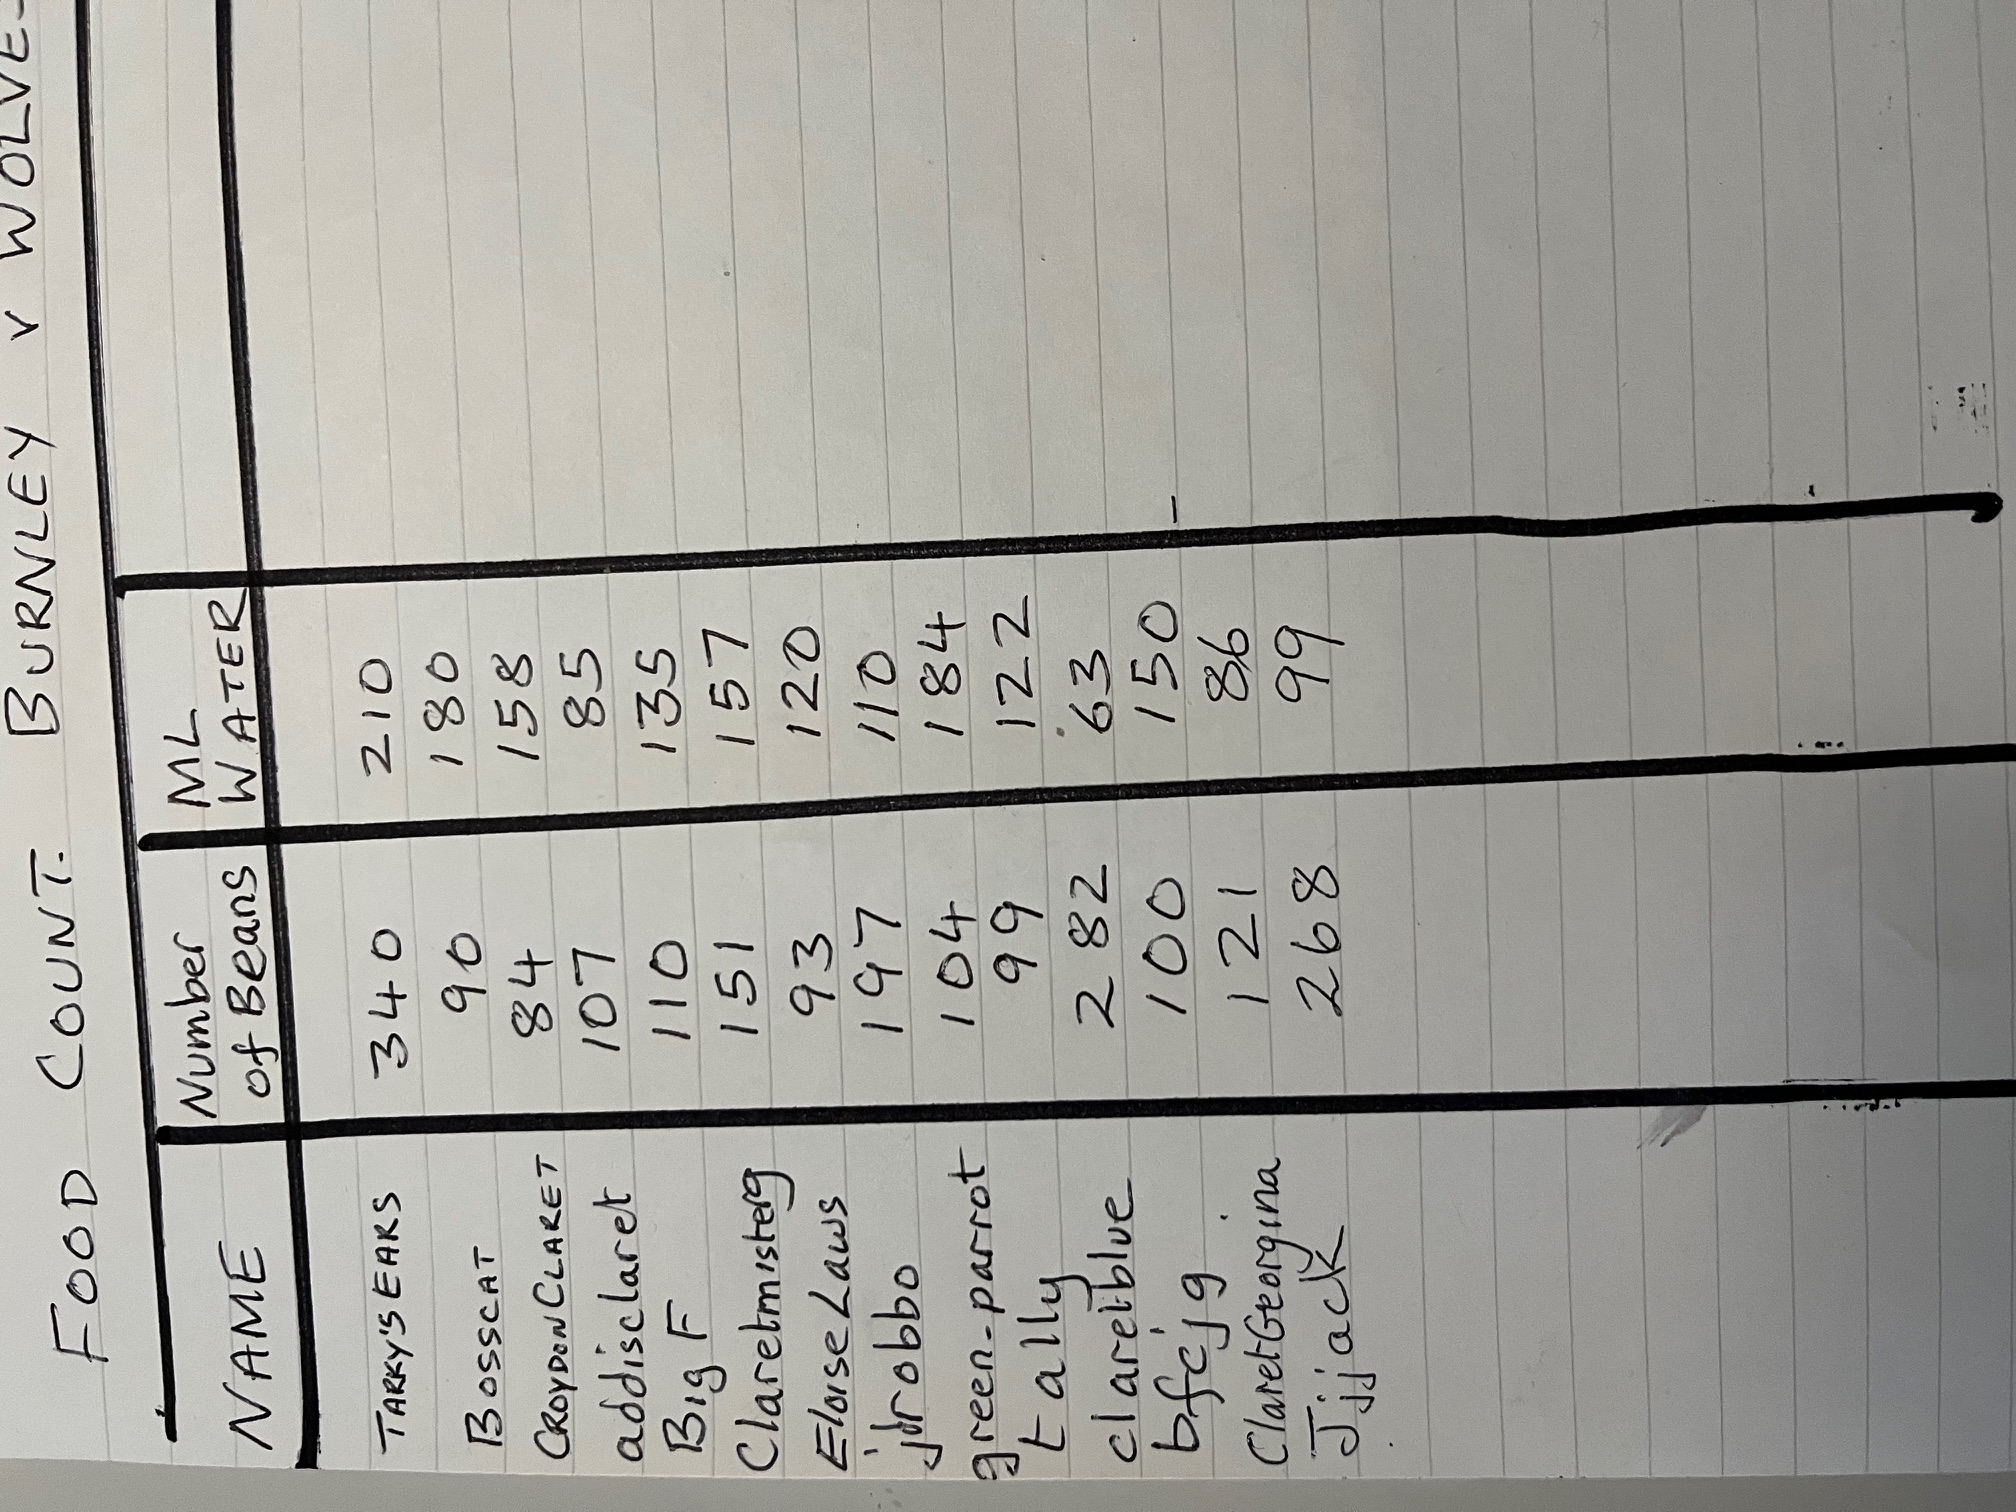 FOOD COUNT. BURNLEY v WOLVE
NAME Number of Beans ML WATER
TARKY'S EARS 340 210
BOSSCAT 90 180
CROYDONCLARET 84 158
addisclaret 107 85
BIG F 110 135
Claretmisterg 151 157
Eloise Laws 93 120
jdrobbo 197 110
green-parrot 104 184
tally 99 122
claretblue 282 63
bfcjg 100 150
ClaretGeorgina 121 86
Jjjack 268 99